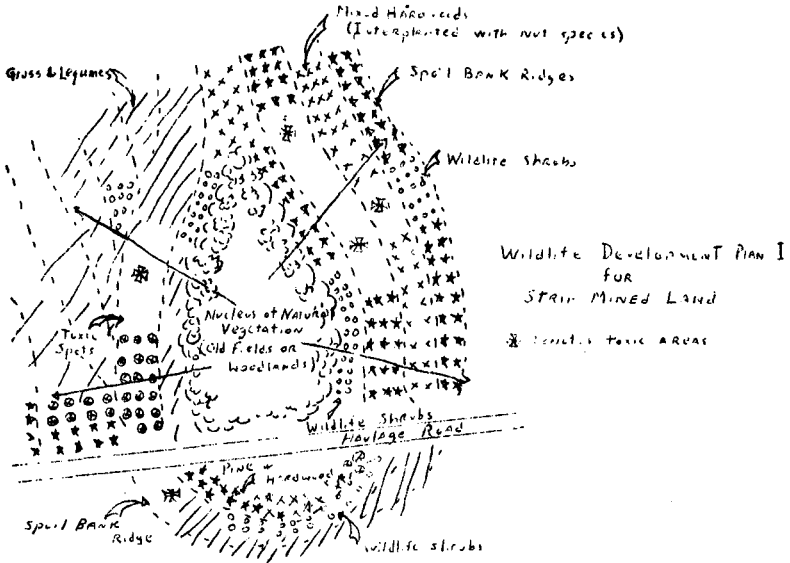 Mixed Hardwoods
(Interplanted with Nut species)
Grass & Legumes
Spoil BANK Ridges
Wildlife Shrubs
Wildlife Development Plan I
for
Strip Mined Land
denotes toxic areas
Nucleus of Natural
Vegetation
(Old Fields or
Woodlands)
Toxic
Spots
Wildlife Shrubs
Haulage Road
Pine +
Hardwood
Spoil BANK
Ridge
Wildlife shrubs